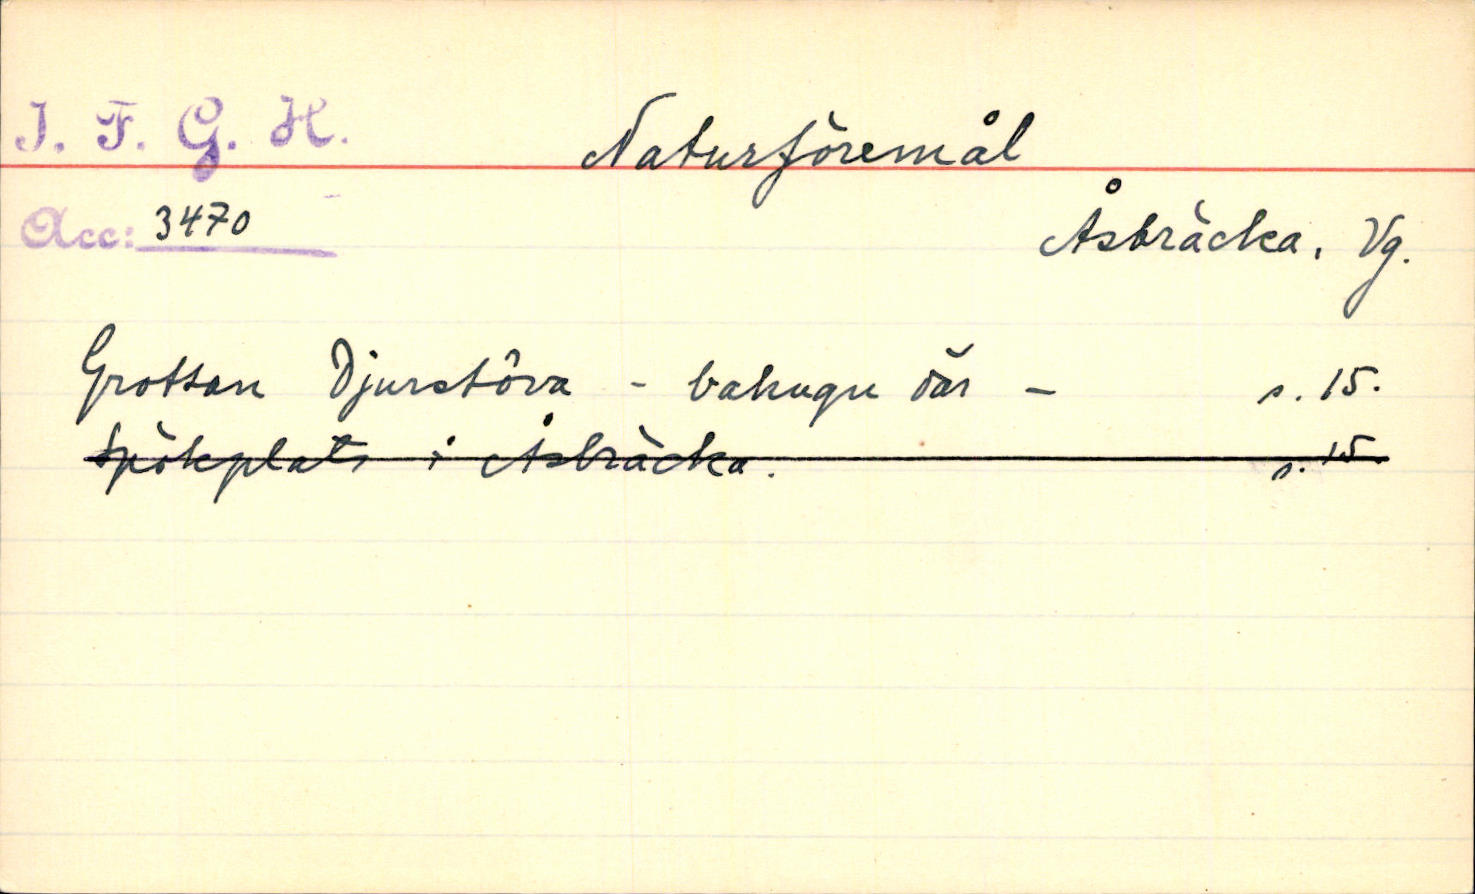 I. F. G. H.
Naturföremål
Acc: 3470
Åsbräcka. Vg.
Grottan Djurstôva - bakugn där - s. 15.
Spökplats i Åsbräcka. s. 15.